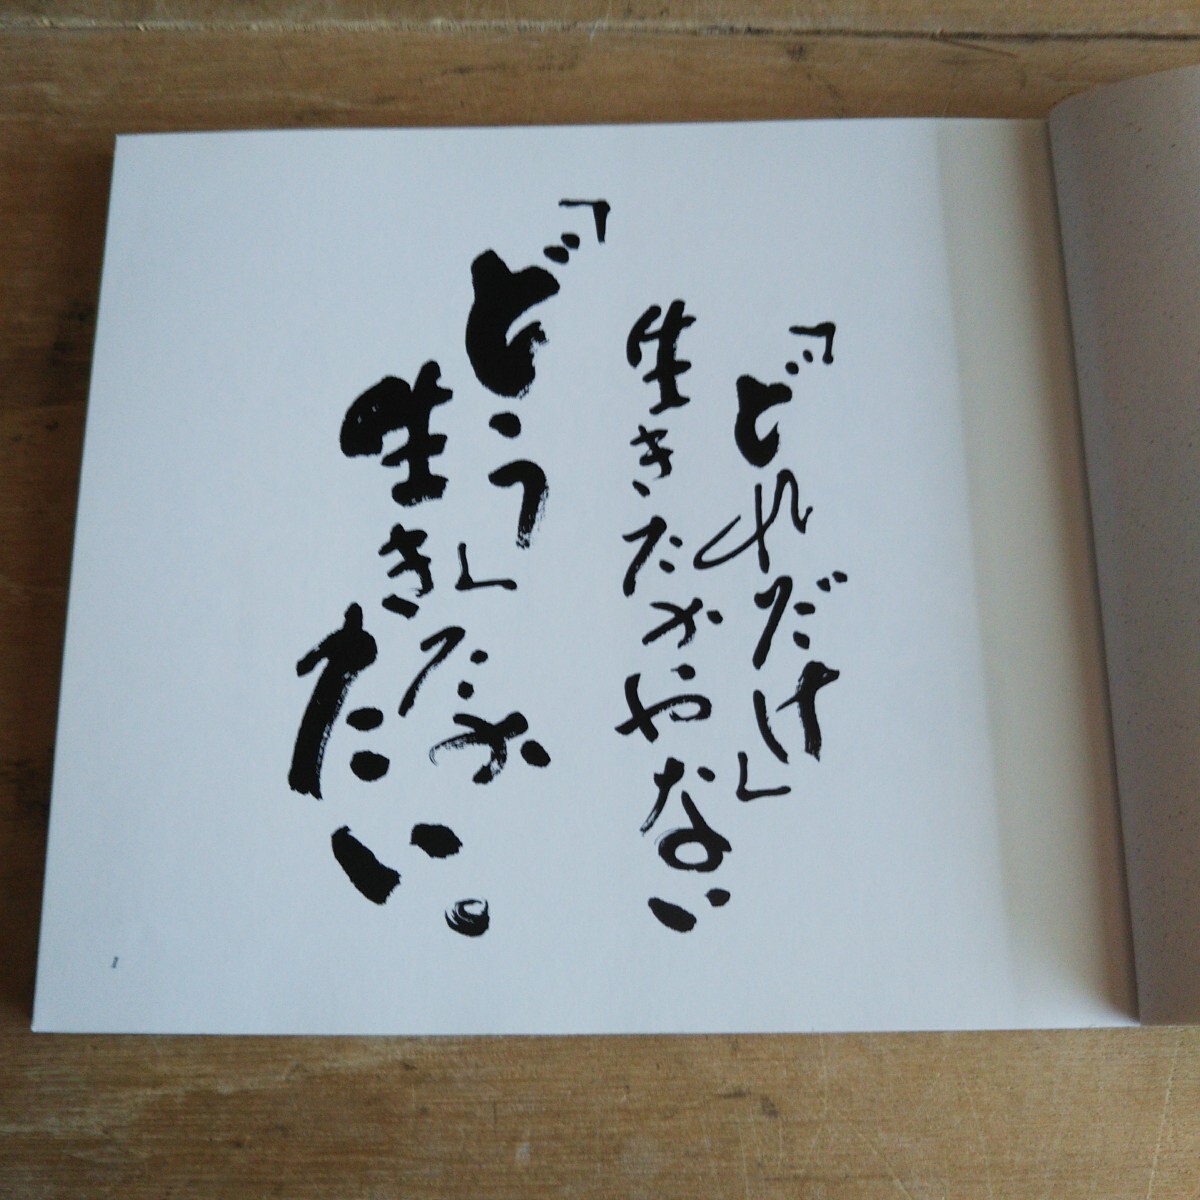 「どれだけ」
生きたかやない
「どう」
生きたか
たい。
1